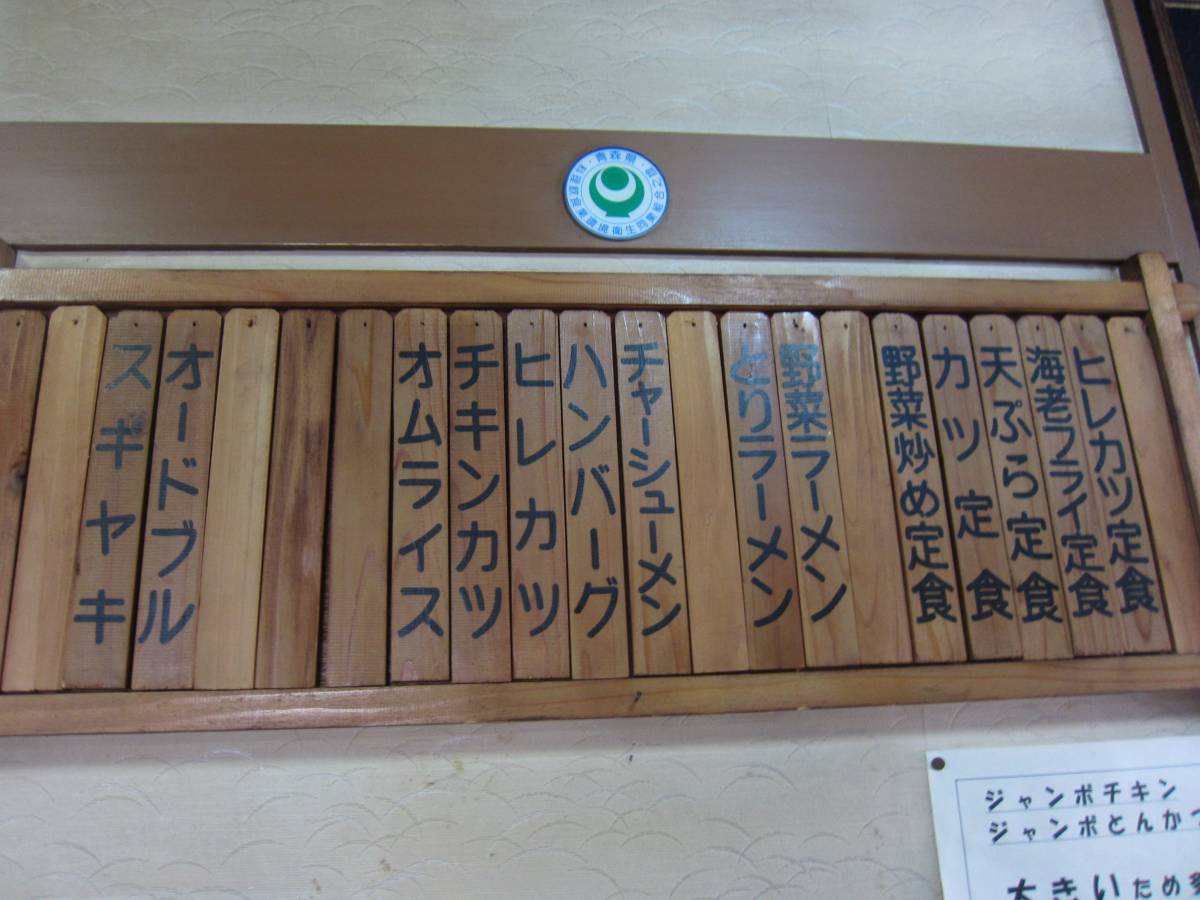 青森県・麺之業組合
料理飲食業環境衛生同業組合
ヒレカツ定食
海老フライ定食
天ぷら定食
カツ定食
野菜炒め定食
野菜ラーメン
とりラーメン
チャーシューメン
ハンバーグ
ヒレカツ
チキンカツ
オムライス
オードブル
スギヤキ
ジャンボチキン
ジャンボとんかつ
大きいため